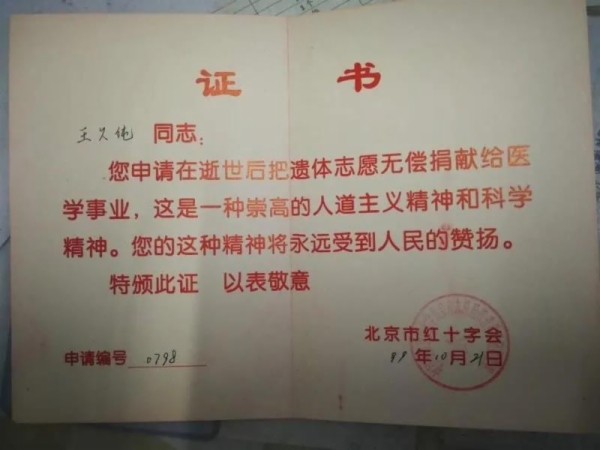 证 书
王久纯 同志:
您申请在逝世后把遗体志愿无偿捐献给医
学事业，这是一种崇高的人道主义精神和科学
精神。您的这种精神将永远受到人民的赞扬。
特颁此证 以表敬意
北京市红十字会
申请编号 0798
99年10月21日